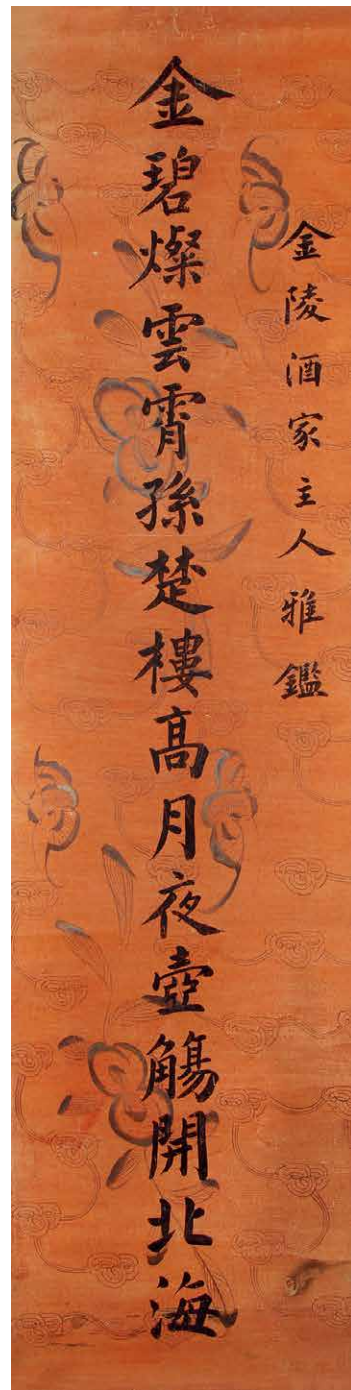 金陵酒家主人雅鑑
金碧燦雲霄孫楚樓高月夜壺觴開北海